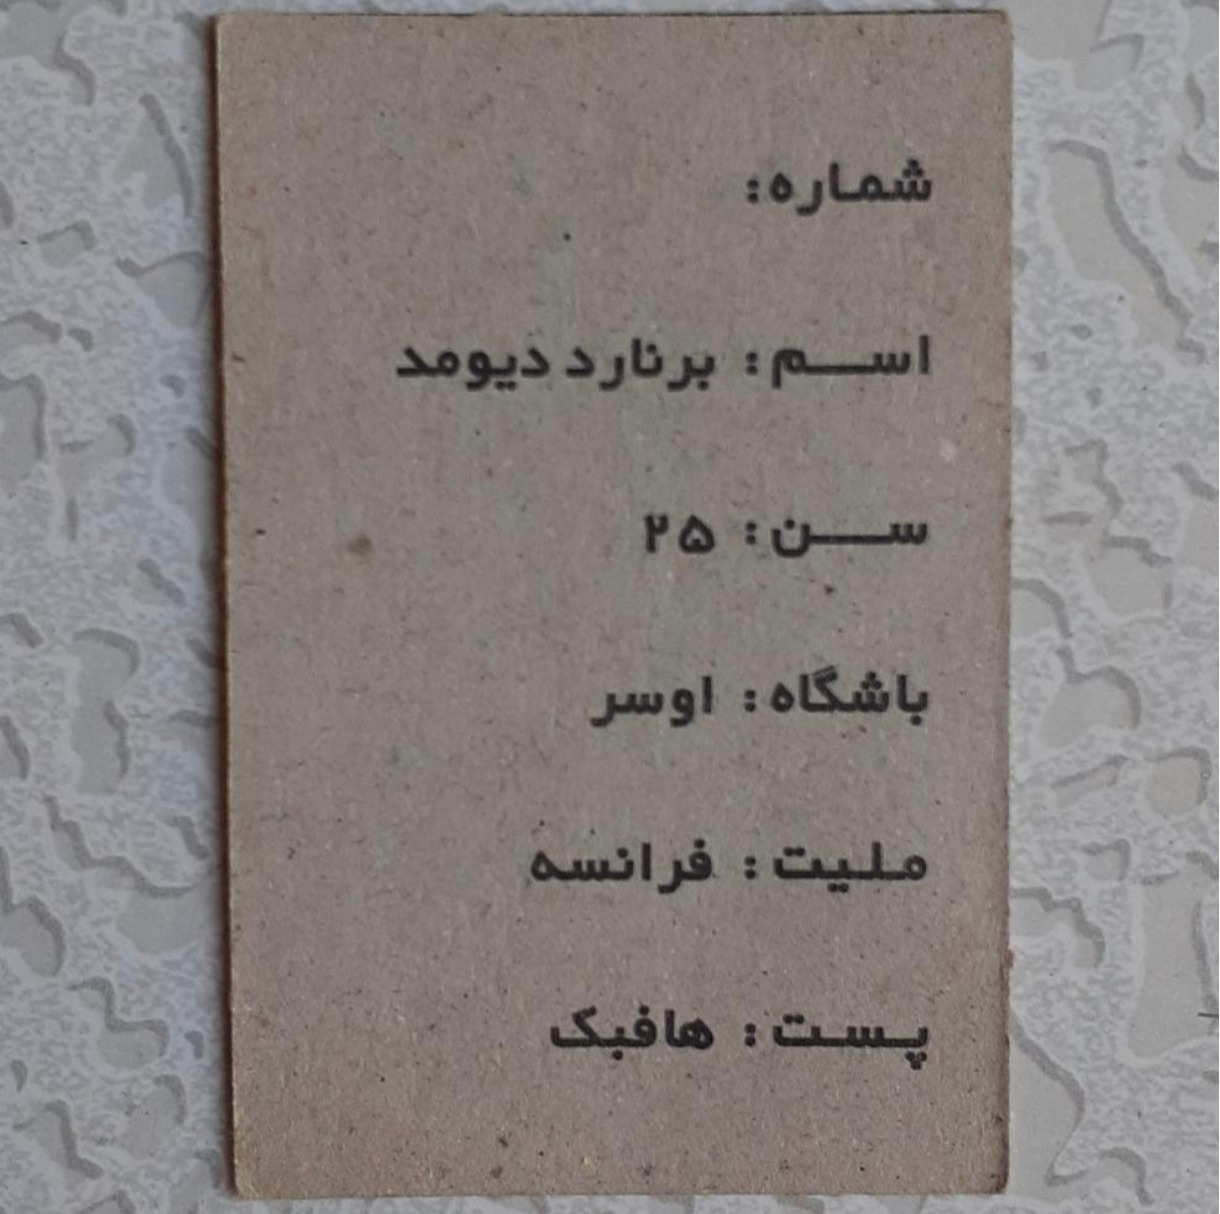 شماره:
اسم: برنارد دیومد
سن: ۲۵
باشگاه: اوسر
ملیت: فرانسه
پست: هافبک